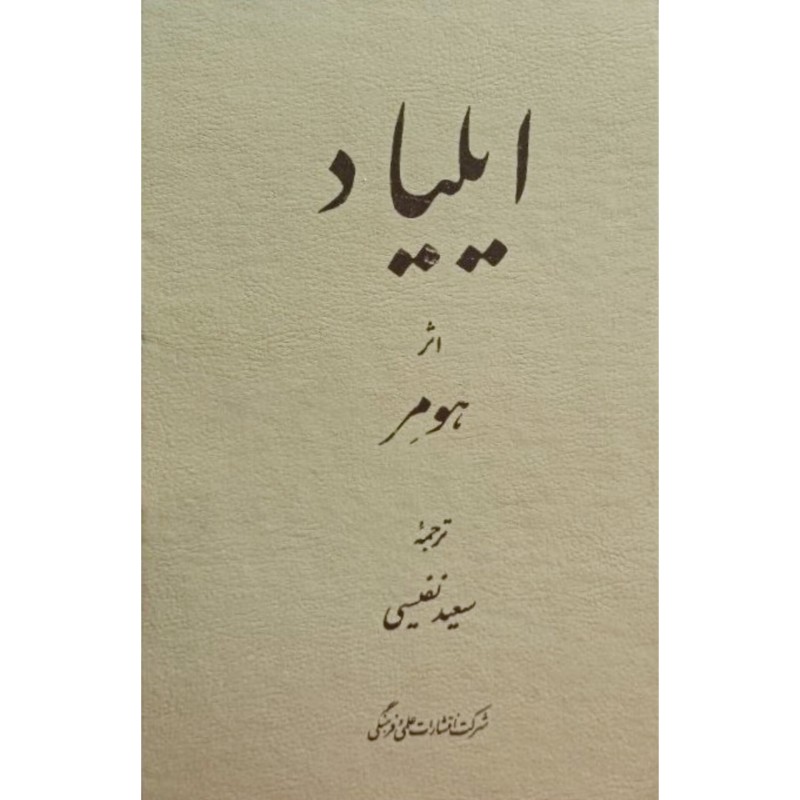 ایلیاد
اثر
هومِر
ترجمهٔ
سعید نفیسی
شرکت انتشارات علمی و فرهنگی